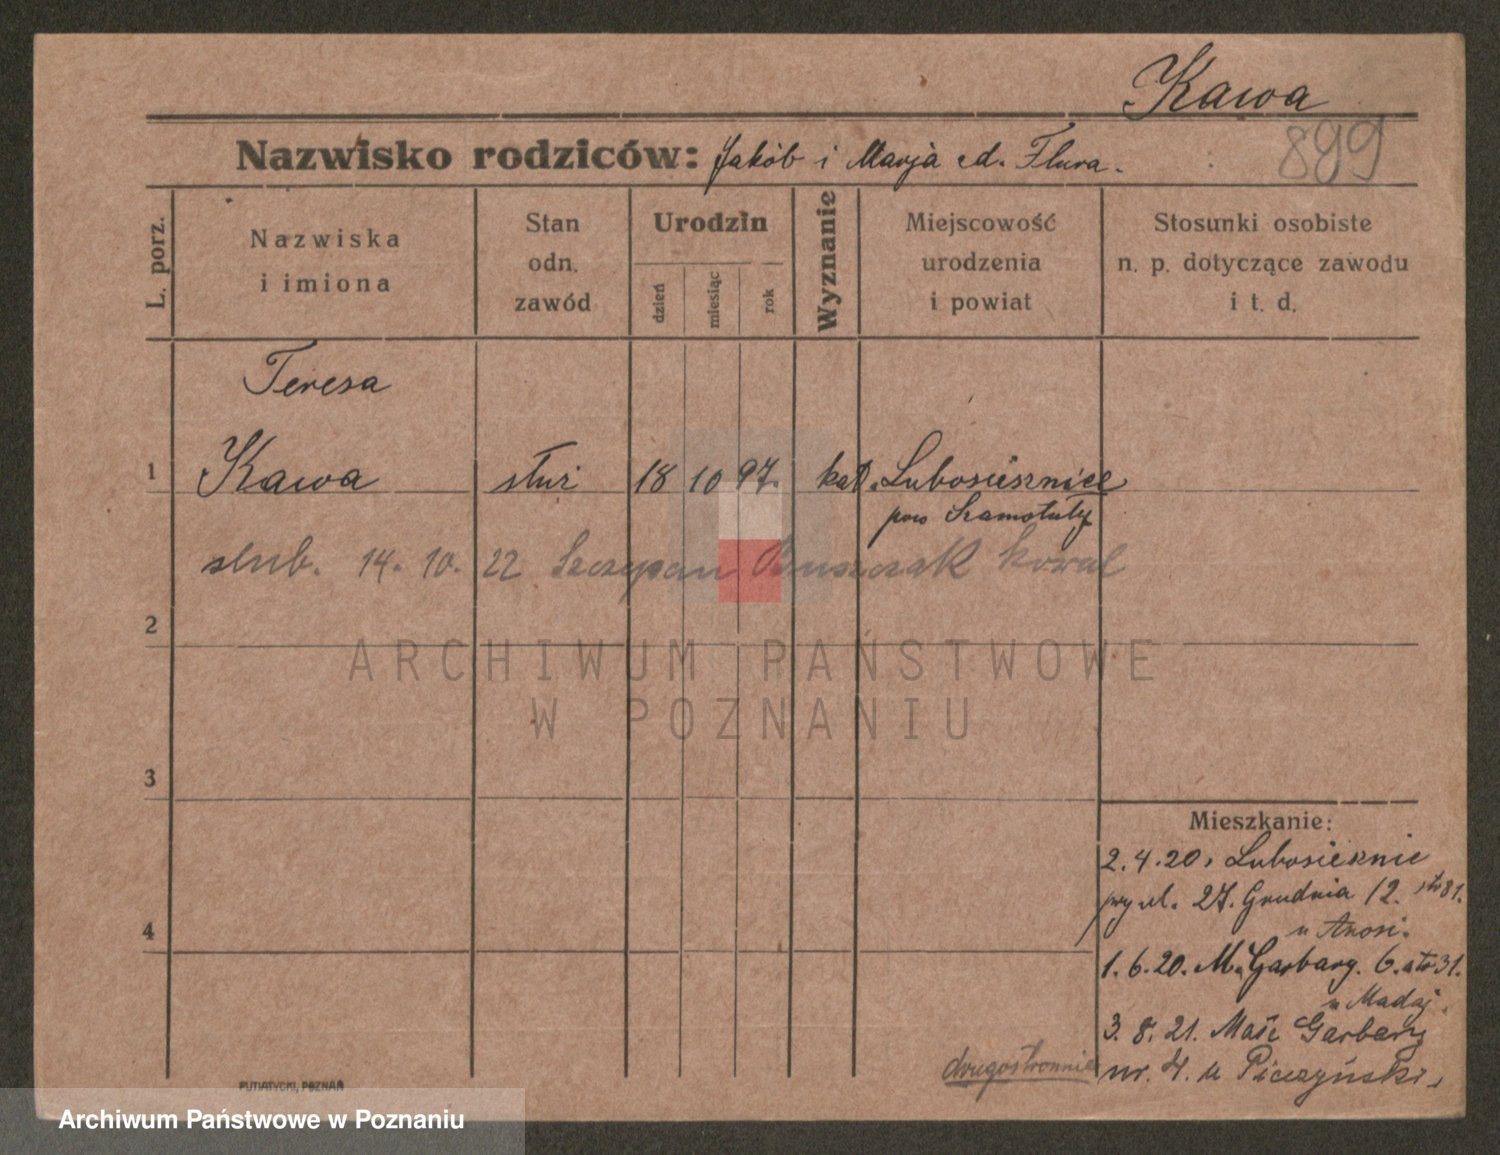 Kawa
899
Nazwisko rodziców: Jakób i Marja d. Flura.
L. porz.
Nazwiska
i imiona
Stan
odn.
zawód
Urodzin
dzień
miesiąc
rok
Wyznanie
Miejscowość
urodzenia
i powiat
Stosunki osobiste
n. p. dotyczące zawodu
i t. d.
Teresa
1 Kawa służ 18 10 97. kat. Lubosiesznice
pow Szamotuły
slub. 14. 10. 22 Szczepan kowal
2
ARCHIWUM PAŃSTWOWE
W POZNANIU
3
Mieszkanie:
2.4.20, Lubosiesznie
przy ul. 27. Grudnia 12.
4
1.6.20. M. Garbary. 6. str 31.
u Madaj.
3. 8. 21. Małe Garbary
nr. 4. u Piczyński,
drugostronnie
PUTIATYCKI, POZNAŃ
Archiwum Państwowe w Poznaniu